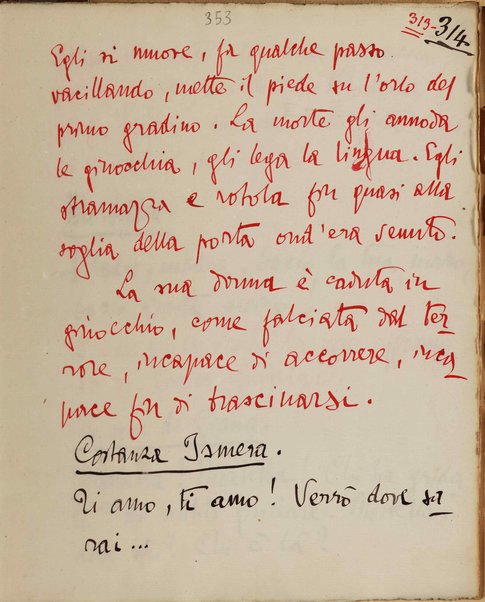 353
313-314
Egli si muove, fa qualche passo
vacillando, mette il piede su l'orlo del
primo gradino. La morte gli annoda
le ginocchia, gli lega la lingua. Egli
stramazza e rotola fin quasi alla
soglia della porta ond'era venuto.
La sua donna è caduta in
ginocchio, come falciata dal ter-
rore, incapace di accorrere, inca-
pace fin di trascinarsi.
Costanza Ismera.
Ti amo, ti amo! Verrò dove sa-
rai...